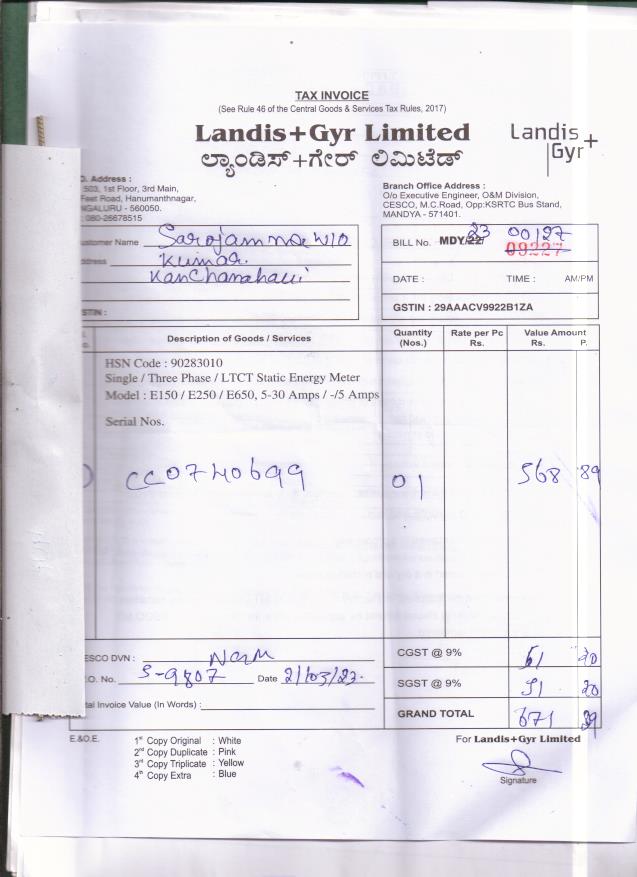 TAX INVOICE
(See Rule 46 of the Central Goods & Services Tax Rules, 2017)
Landis+Gyr Limited
ಲ್ಯಾಂಡಿಸ್+ಗೇರ್ ಲಿಮಿಟೆಡ್
Landis+
Gyr
Address :
503, 1st Floor, 3rd Main,
Feet Road, Hanumanthnagar,
560050.
080-26678515
Branch Office Address :
O/o Executive Engineer, O&M Division,
CESCO, M.C.Road, Opp:KSRTC Bus Stand,
MANDYA - 571401.
Customer Name Sarojamma W/O
Kumar.
Kanchanahalli
BILL No. MDY/22/ 23 00127
09227
DATE : TIME : AM/PM
GSTIN : 29AAACV9922B1ZA
Description of Goods / Services Quantity (Nos.) Rate per Pc Rs. Value Amount Rs. P.
HSN Code : 90283010
Single / Three Phase / LTCT Static Energy Meter
Model : E150 / E250 / E650, 5-30 Amps / -/5 Amps
Serial Nos.
CC0740699 01 568 89
ESCO DVN :
CGST @ 9% 51 20
O. No. S-9807 Date 21/03/23.
SGST @ 9% 51 20
Invoice Value (In Words) :
GRAND TOTAL 671 29
E.&O.E.
1st Copy Original : White
2nd Copy Duplicate : Pink
3rd Copy Triplicate : Yellow
4th Copy Extra : Blue
For Landis+Gyr Limited
Signature